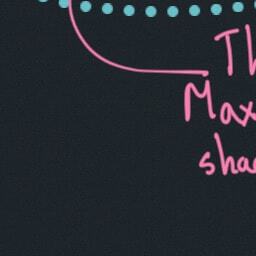 Th
Max
sha